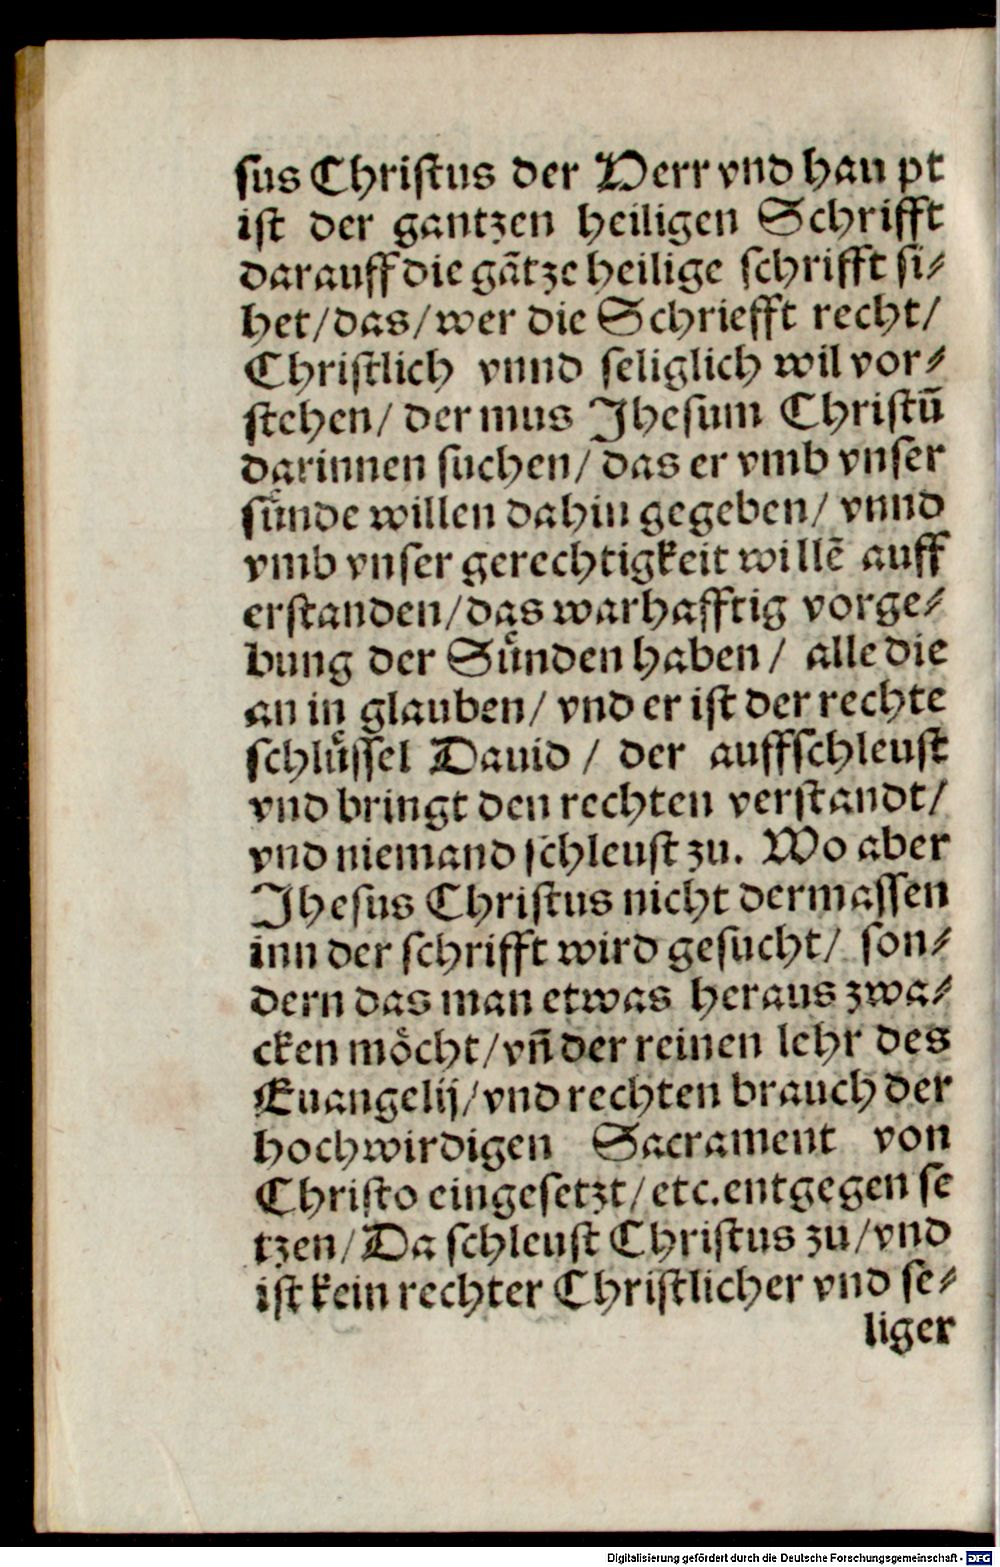 sus Christus der Herr vnd hau pt
ist der gantzen heiligen Schrifft
darauff die gãtze heilige schrifft si⸗
het/das/wer die Schriefft recht/
Christlich vnnd seliglich wil vor⸗
stehen/ der mus Jhesum Christũ
darinnen suchen/ das er vmb vnser
sůnde willen dahin gegeben/ vnnd
vmb vnser gerechtigkeit willẽ auff
erstanden/das warhafftig vorge⸗
bung der Sůnden haben/ alle die
an in glauben/ vnd er ist der rechte
schlůssel Dauid / der auffschleust
vnd bringt den rechten verstandt/
vnd niemand schleust zu. Wo aber
Jhesus Christus nicht dermassen
inn der schrifft wird gesucht/ son⸗
dern das man etwas heraus zwa⸗
cken möcht/vñ der reinen lehr des
Euangelij/vnd rechten brauch der
hochwirdigen Sacrament von
Christo eingesetzt/etc.entgegen se
tzen/Da schleust Christus zu/vnd
ist kein rechter Christlicher vnd se⸗
liger
Digitalisierung gefördert durch die Deutsche Forschungsgemeinschaft - DFG